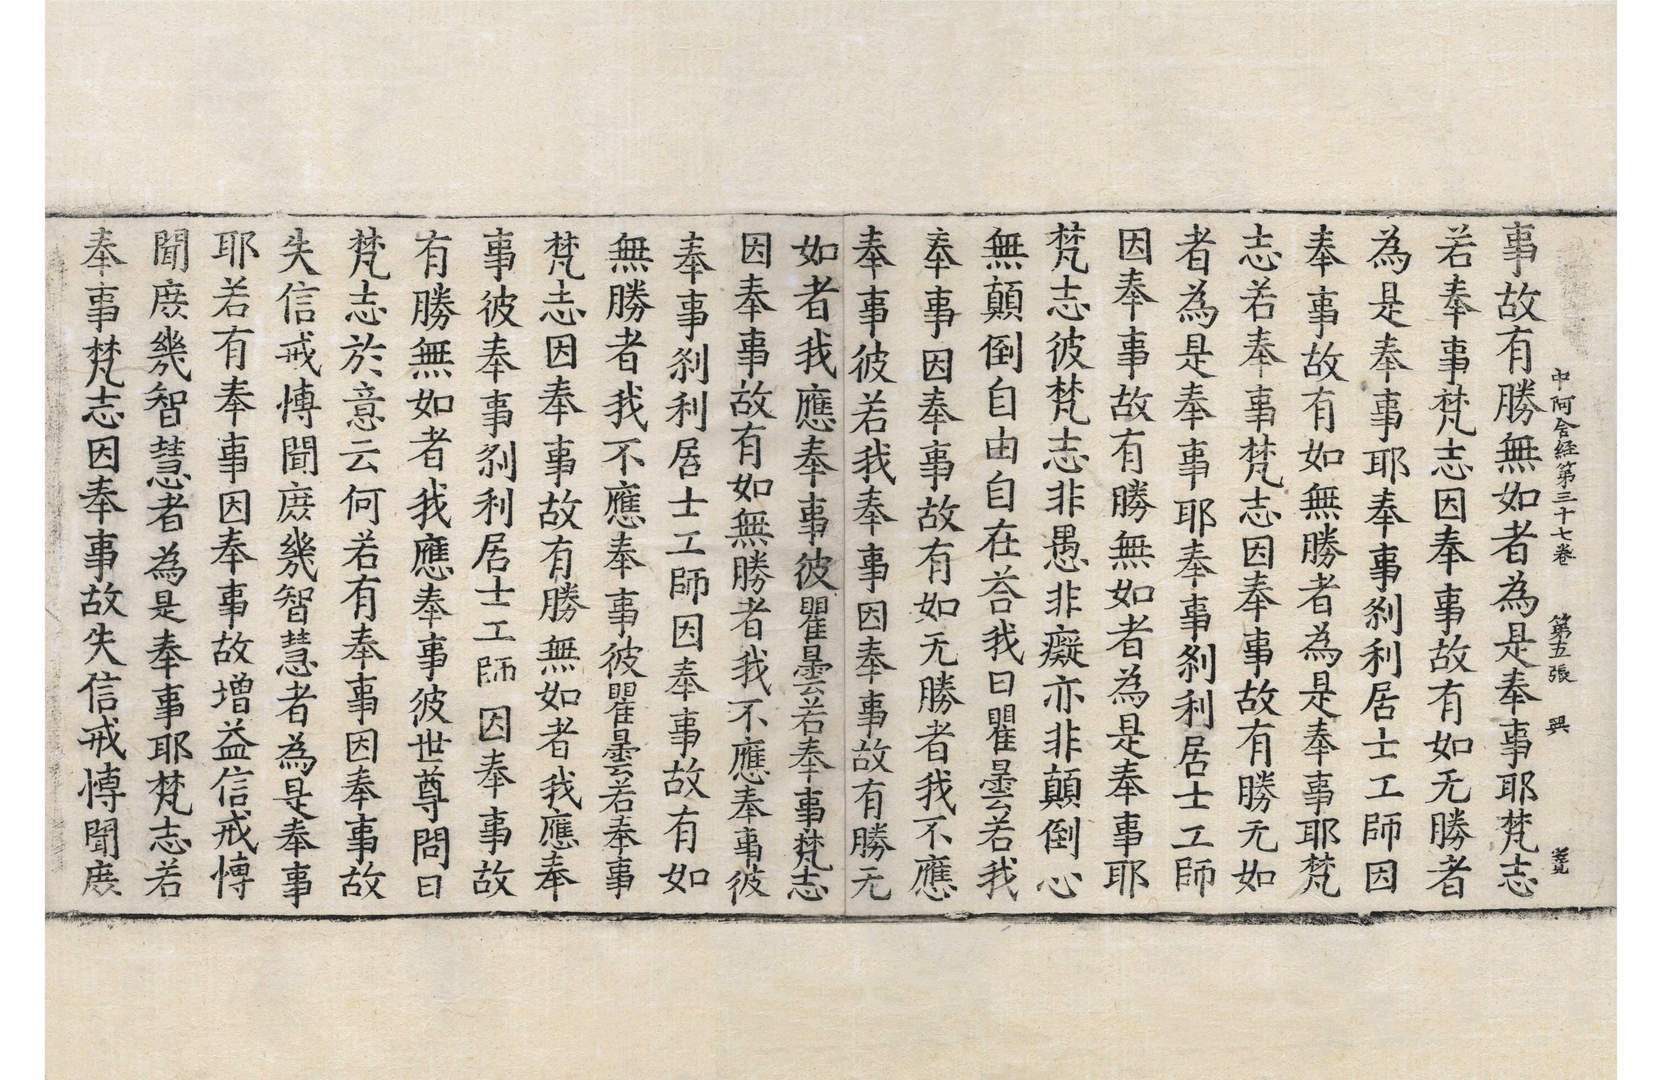 中阿含経第三十七卷 第五張 興
事故有勝無如者為是奉事耶梵志
若奉事梵志因奉事故有如无勝者
為是奉事耶奉事刹利居士工師因
奉事故有如無勝者為是奉事耶梵
志若奉事梵志因奉事故有勝无如
者為是奉事耶奉事刹利居士工師
因奉事故有勝無如者為是奉事耶
梵志彼梵志非愚非癡亦非顛倒心
無顛倒自由自在荅我曰瞿曇若我
奉事因奉事故有如无勝者我不應
奉事彼若我奉事因奉事故有勝无
如者我應奉事彼瞿曇若奉事梵志
因奉事故有如無勝者我不應奉事彼
奉事刹利居士工師因奉事故有如
無勝者我不應奉事彼瞿曇若奉事
梵志因奉事故有勝無如者我應奉
事彼奉事刹利居士工師因奉事故
有勝無如者我應奉事彼世尊問曰
梵志於意云何若有奉事因奉事故
失信戒博聞庶幾智慧者為是奉事
耶若有奉事因奉事故增益信戒博
聞庶幾智慧者為是奉事耶梵志若
奉事梵志因奉事故失信戒博聞庶